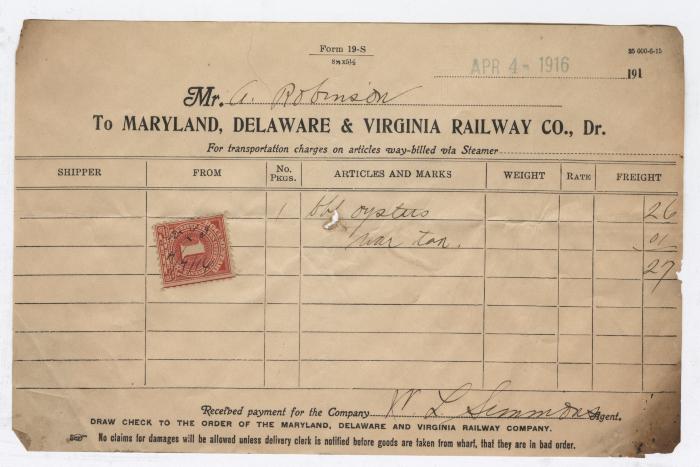 Form 19-S
8½x5½
25 000-6-15
APR 4 - 1916 191
Mr. A. Robinson
To MARYLAND, DELAWARE & VIRGINIA RAILWAY CO., Dr.
For transportation charges on articles way-billed via Steamer
SHIPPER FROM No. PKGS. ARTICLES AND MARKS WEIGHT RATE FREIGHT
1 bbl oysters 26
war tax. 01
27
1
Received payment for the Company W L Simmons Agent.
DRAW CHECK TO THE ORDER OF THE MARYLAND, DELAWARE AND VIRGINIA RAILWAY COMPANY.
No claims for damages will be allowed unless delivery clerk is notified before goods are taken from wharf, that they are in bad order.